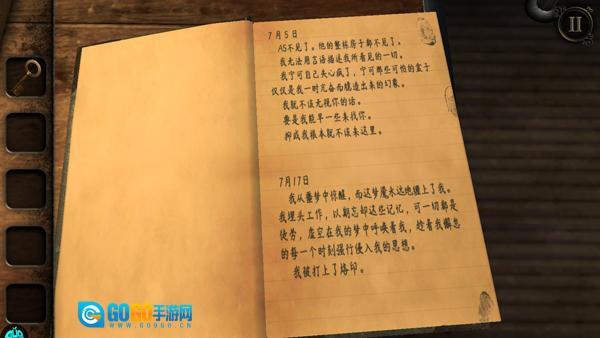 7月5日
AS不见了。他的整栋房子都不见了。
我无法用言语描述我所看见的一切。
我宁可自己失心疯了，宁可那些可怕的盒子
仅仅是我一时亢奋而臆造出来的幻象。
我就不该无视你的话。
要是我能早一些来找你。
抑或我根本就不该来这里。
7月17日
我从噩梦中惊醒，而这梦魇永远地缠上了我。
我埋头工作，以期忘却这些记忆，可一切都是
徒劳，虚空在我的梦中呼唤着我，趁着我懈怠
的每一个时刻强行侵入我的思想。
我被打上了烙印。
GOGO手游网
WWW.GOGO.CN